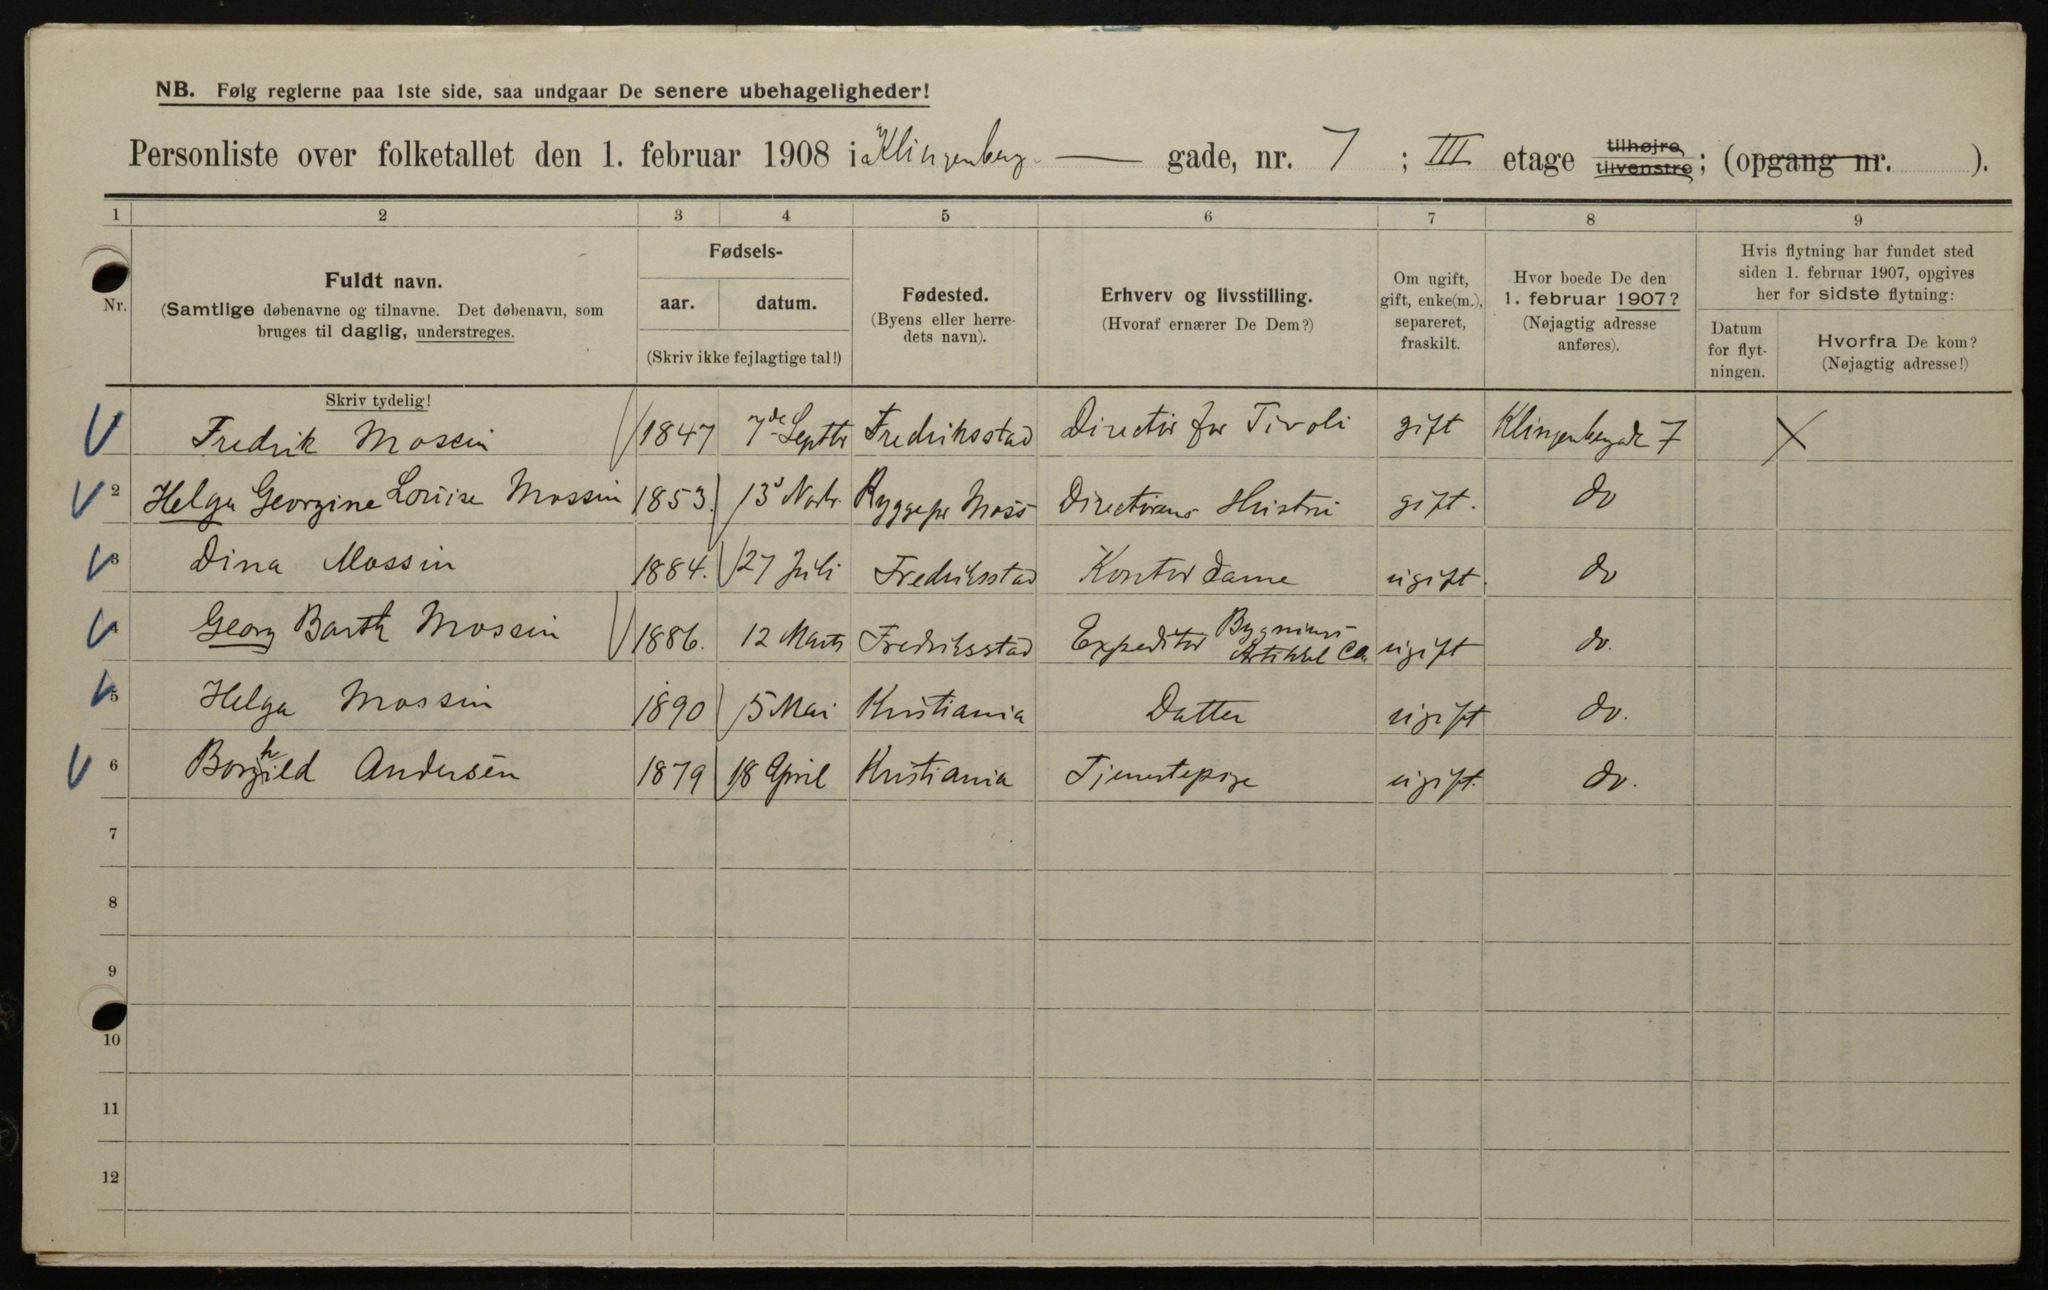 NB. Følg reglerne paa 1ste side, saa undgaar De senere ubehageligheder!
Personliste over folketallet den 1. februar 1908 i Klingenberg- gade, nr. 7 ; III etage tilhøjre, tilvenstre; (opgang nr. ).
1 2 3 4 5 6 7 8 9
Nr.
Fuldt navn.
(Samtlige døbenavne og tilnavne. Det døbenavn, som
bruges til daglig, understreges.
Skriv tydelig!
Fødsels-
aar. datum.
(Skriv ikke fejlagtige tal!)
Fødested.
(Byens eller herre-
dets navn).
Erhverv og livsstilling.
(Hvoraf ernærer De Dem?)
Om ugift,
gift, enke(m.),
separeret,
fraskilt.
Hvor boede De den
1. februar 1907?
(Nøjagtig adresse
anføres).
Hvis flytning har fundet sted
siden 1. februar 1907, opgives
her for sidste flytning:
Datum
for flyt-
ningen.
Hvorfra De kom?
(Nøjagtig adresse!)
Fredrik Mossin 1847 7de Septbr Fredriksstad Directør for Tivoli gift Klingenbergadr 7
2 Helga Georgine Louise Mossin 1853. 13 Novbr. Rygge pr Moss Directørens Hustru gift. do
3 Dina Mossin 1884. 27 Juli Fredriksstad Kontor dame ugift. do
4 Georg Barth Mossin 1886. 12 Marts Fredriksstad Expeditør Bygnings Artikkel Co. ugift do.
5 Helga Mossin 1890 5 Mai Kristiania Datter ugift do.
6 Borghild Andersen 1879 18 April Kristiania Tjenestepige ugift. do.
7
8
9
10
11
12